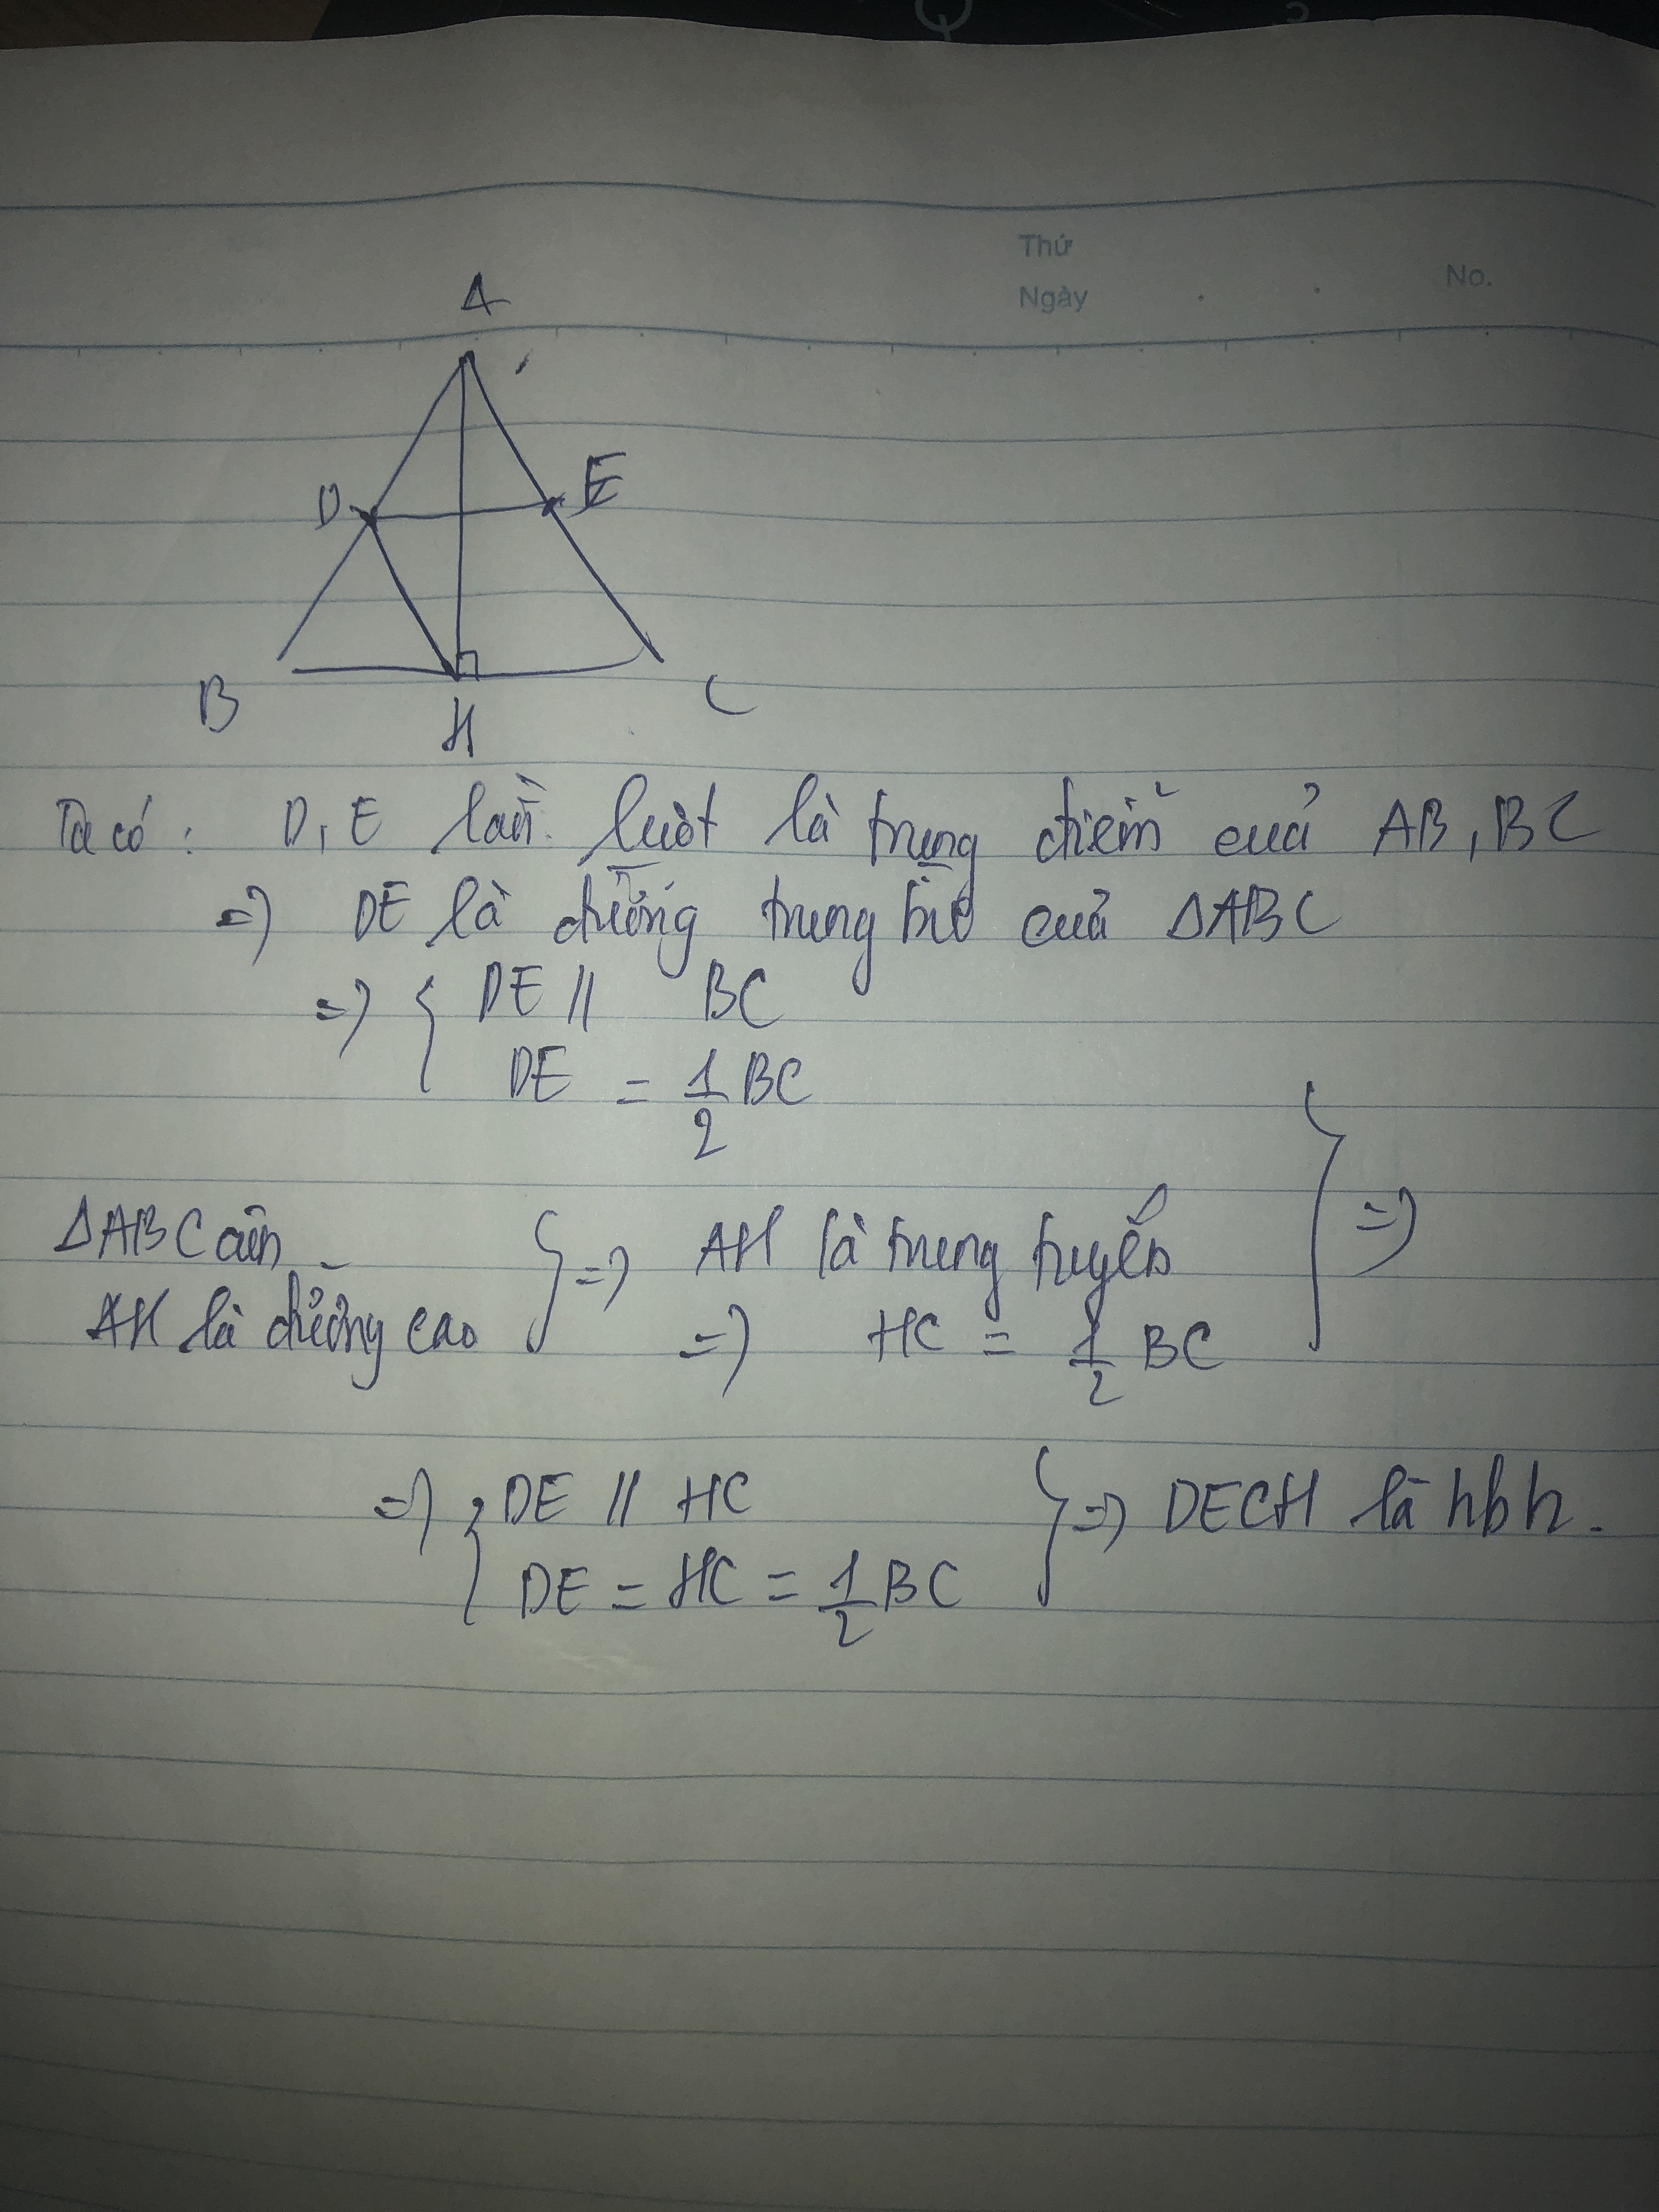 Thứ
Ngày
No.
A
D
E
B
H
C
Ta có : D, E lần lượt là trung điểm của AB, BC
=> DE là đường trung bình của ΔABC
=> { DE // BC
DE = 1/2 BC
ΔABC cân
AH là đường cao } => AH là trung tuyến
=> HC = 1/2 BC } =>
=> { DE // HC
DE = HC = 1/2 BC } => DECH là hbh.